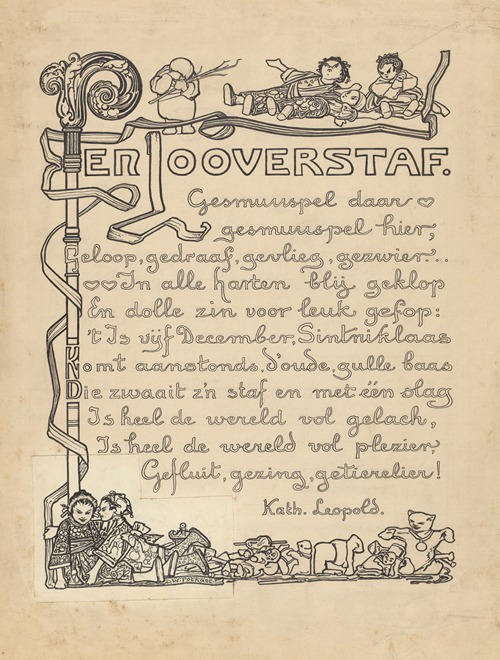 EEN TOOVERSTAF.
Gesmuispel daar
gesmuispel hier,
Geloop, gedraaf, gevlieg, gezwier...
In alle harten blij geklop
En dolle zin voor leuk gefop:
't Is vijf December, Sintniklaas
Komt aanstonds, d'oude, gulle baas
Die zwaait z'n staf en met één slag
Is heel de wereld vol gelach,
Is heel de wereld vol plezier,
Gefluit, gezing, getierelier!
Kath. Leopold.